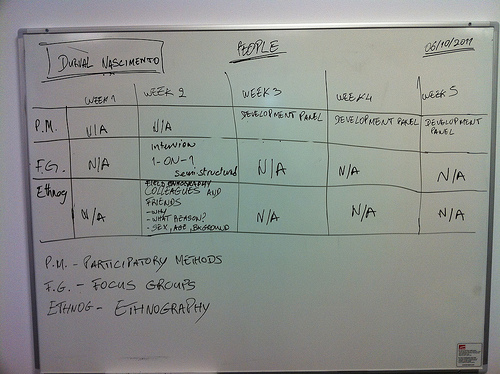 DURVAL NASCIMENTO
PEOPLE
06/10/2011
WEEK 1
WEEK 2
WEEK 3
WEEK 4
WEEK 5
P.M.
N/A
N/A
DEVELOPMENT PANEL
DEVELOPMENT PANEL
DEVELOPMENT
PANEL
F.G.
N/A
Interview
1-ON-1
semi-structured
N/A
N/A
N/A
Ethnog
N/A
FIELD ETHNOGRAPHY
COLLEAGUES AND
FRIENDS
- WHY
- WHAT REASON?
- SEX, AGE, BKGROUND
N/A
N/A
N/A
P.M. - PARTICIPATORY METHODS
F.G. - FOCUS GROUPS
ETHNOG - ETHNOGRAPHY